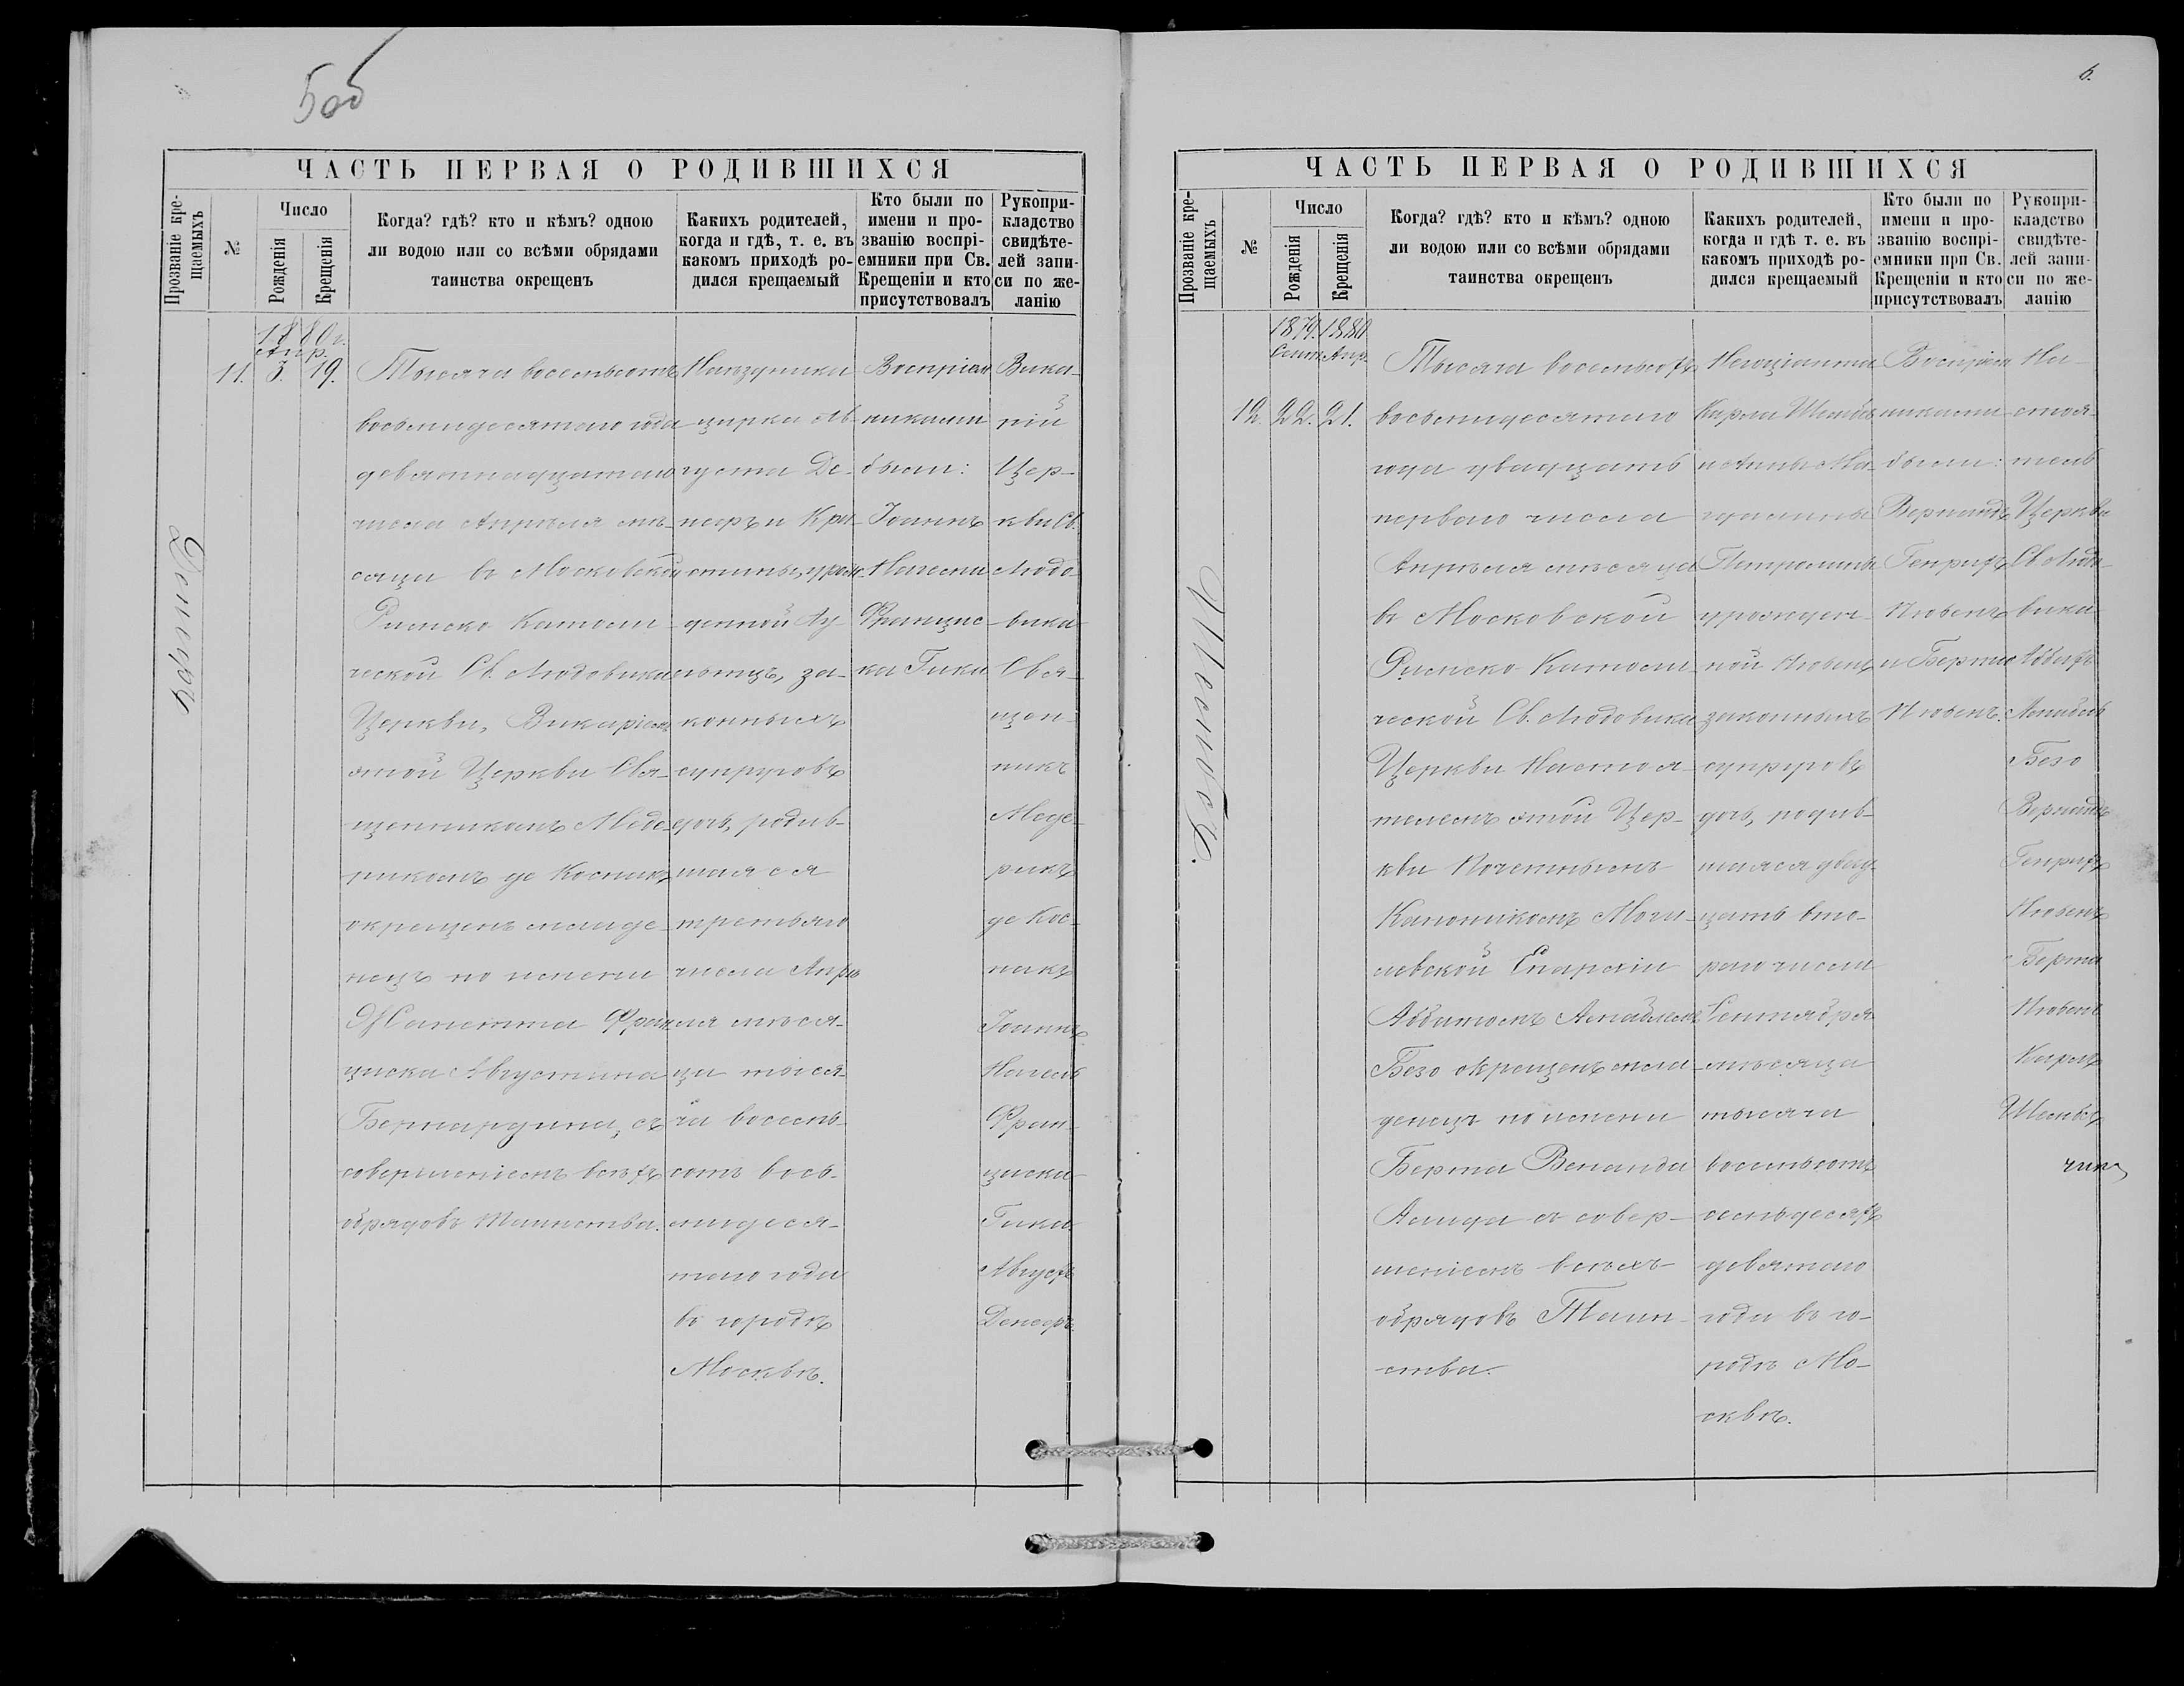 5 об
ЧАСТЬ ПЕРВАЯ О РОДИВШИХСЯ
Прозваніе кре-
щаемыхъ
№
Число
Рожденія
Крещенія
Когда? гдѣ? кто и кѣмъ? одною
ли водою или со всѣми обрядами
таинства окрещенъ
Какихъ родителей,
когда и гдѣ, т. е. въ
какомъ приходѣ ро-
дился крещаемый
Кто были по
имени и про-
званію воспрі-
емники при Св.
Крещеніи и кто
присутствовалъ
Рукопри-
кладство
свидѣте-
лей запи-
си по же-
ланію
1880 г.
Апр.
11. 3. 19.
Тысяча восемьсотъ
восьмидесятаго года
девятнадцатаго
числа Апрѣля мѣ-
сяца въ Московской
Римско Католи-
ческой Св. Людовика
Церкви, Викаріемъ
этой Церкви Свя-
щенникомъ Меде-
рикомъ де Косникъ
окрещенъ младе-
нецъ по имени
Жанетта Фран-
циска Августина
Бернардина, съ
совершеніемъ всѣхъ
обрядовъ Таинства.
Наѣздника
цирка Ав-
густа Де-
и Кри-
стины, урож-
денной
за-
конныхъ
супруговъ
дочь, родив-
шаяся
третьяго
числа Апрѣ-
ля мѣся-
ца тыся-
ча восемь-
сотъ вось-
мидеся-
таго года
въ городѣ
Москвѣ.
Воспріем
никами
были:
Іоаннъ
Франциска
Гика
Вика-
рій
Цер-
кви Св.
Людо-
вика
Свя-
щен-
никъ
Меде-
рикъ
де Кос-
никъ
Іоаннъ
Фран-
циска
Гика
Августъ
6.
ЧАСТЬ ПЕРВАЯ О РОДИВШИХСЯ
Прозваніе кре-
щаемыхъ
№
Число
Рожденія
Крещенія
Когда? гдѣ? кто и кѣмъ? одною
ли водою или со всѣми обрядами
таинства окрещенъ
Какихъ родителей,
когда и гдѣ т. е. въ
какомъ приходѣ ро-
дился крещаемый
Кто были по
имени и про-
званію воспрі-
емники при Св.
Крещеніи и кто
присутствовалъ
Рукопри-
кладство
свидѣте-
лей запи-
си по же-
ланію
1879. 1880
Сент. Апр.
12. 22. 21.
Тысяча восемьсотъ
восьмидесятаго
года двадцать
перваго числа
Апрѣля мѣсяца
въ Московской
Римско Католи-
ческой Св. Людовика
Церкви Настоя-
телемъ этой Цер-
кви Почетнымъ
Каноникомъ Моги-
левской Епархіи
Аббатомъ
окрещенъ мла-
денецъ по имени
Берта
Алида съ совер-
шеніемъ всѣхъ
обрядовъ Таин-
ства.
Негоціанта
Карла
и Анны Ма-
урожден-
ной
законныхъ
супруговъ
дочь, родив-
шаяся двад-
цать вто-
раго числа
Сентября
мѣсяца
тысяча
восемьсотъ
семьдесятъ
девятаго
года въ го-
родѣ Мо-
сквѣ.
Воспріем
никами
были:
Генрихъ
и Берта
На-
стоя-
тель
Церкви
Св. Людо-
вика
Аббатъ
Генрихъ
Берта
Карлъ